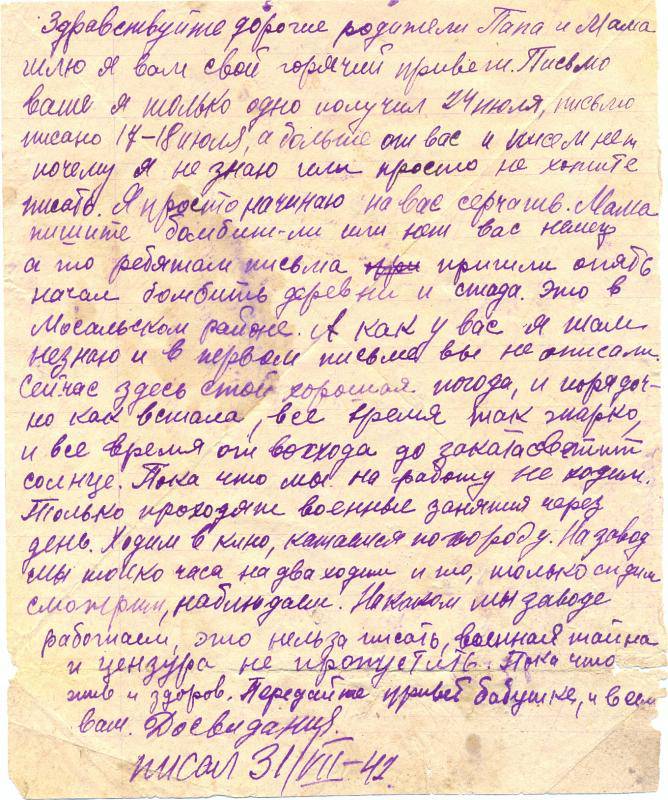 Здравствуйте дорогие родители Папа и Мама
шлю я вам свой горячий привет. Письмо
ваше я только одно получил 24 июля, письмо
писано 17-18 июля, а больше от вас и писем нет
почему я не знаю или просто не хотите
писать. Я просто начинаю на вас серчать. Мама
пишите бомбит-ли или нет вас немец
а то ребятам письма пришли опять
начал бомбить деревни и стада. Это в
Мосальском районе. А как у вас я там
незнаю и в первом письме вы не описали.
Сейчас здесь стой хорошая погода, и порядоч-
но как встала, все время так жарко,
и все время от восхода до заката светит
солнце. Пока что мы на работу не ходим.
Только проходят военные занятия через
день. Ходим в кино, катаемся по городу. На завод
мы только часа на два ходим и то, только сидим
смотрим, наблюдаем. На каком мы заводе
работаем, это нельза писать, военная тайна
и цензура не пропустить. Пока что
жив и здоров. Передайте привет бабушке, и всем
вам. Досвидания.
писал 31/VII-42